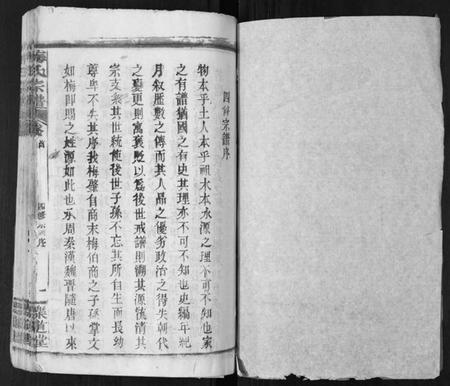 四修宗譜序
物本乎土人本乎祖木本水源之理不可不知也家
之有譜猶國之有史其理亦不可不知也史編年紀
月叙歷數之傳而其人品之優劣政治之得失朝代
之變更則寓褒貶以爲後世戒譜則溯其源流清其
宗支叙其世統使後世子孫不忘其所自生而長幼
尊卑不失其序我梅肇自商末梅伯商之子孫掌文
如梅即賜之姓源如此也承周秦漢魏晋隨唐以來
梅氏宗譜
卷首
四修宗譜序
一
樂道堂